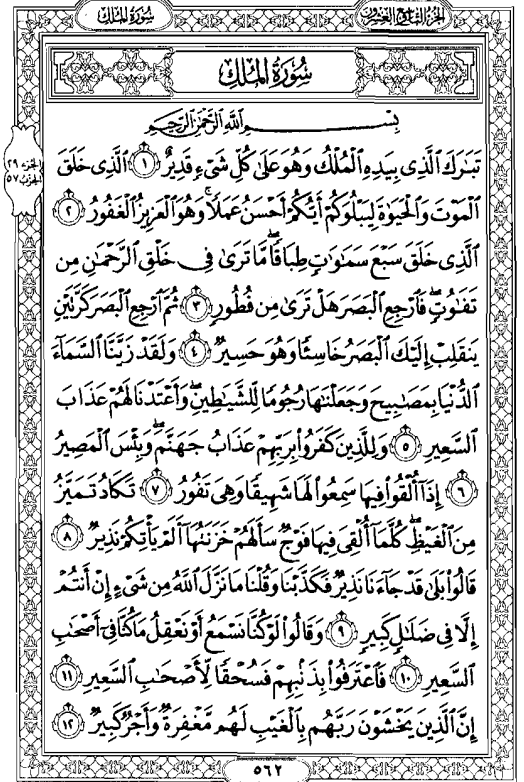 سُورَةُ المُلْكِ
الجُزْءُ التَّاسِعُ وَالعِشْرُونَ
سُورَةُ المُلْكِ
بِسْمِ اللَّهِ الرَّحْمَٰنِ الرَّحِيمِ
تَبَٰرَكَ ٱلَّذِى بِيَدِهِ ٱلْمُلْكُ وَهُوَ عَلَىٰ كُلِّ شَىْءٍ قَدِيرٌ ١ ٱلَّذِى خَلَقَ
الجزء ٢٩
الحزب ٥٧
ٱلْمَوْتَ وَٱلْحَيَوٰةَ لِيَبْلُوَكُمْ أَيُّكُمْ أَحْسَنُ عَمَلًا ۚ وَهُوَ ٱلْعَزِيزُ ٱلْغَفُورُ ٢
ٱلَّذِى خَلَقَ سَبْعَ سَمَٰوَٰتٍ طِبَاقًا ۖ مَّا تَرَىٰ فِى خَلْقِ ٱلرَّحْمَٰنِ مِن
تَفَٰوُتٍ ۖ فَٱرْجِعِ ٱلْبَصَرَ هَلْ تَرَىٰ مِن فُطُورٍ ٣ ثُمَّ ٱرْجِعِ ٱلْبَصَرَ كَرَّتَيْنِ
يَنقَلِبْ إِلَيْكَ ٱلْبَصَرُ خَاسِئًا وَهُوَ حَسِيرٌ ٤ وَلَقَدْ زَيَّنَّا ٱلسَّمَآءَ
ٱلدُّنْيَا بِمَصَٰبِيحَ وَجَعَلْنَٰهَا رُجُومًا لِّلشَّيَٰطِينِ ۖ وَأَعْتَدْنَا لَهُمْ عَذَابَ
ٱلسَّعِيرِ ٥ وَلِلَّذِينَ كَفَرُوا۟ بِرَبِّهِمْ عَذَابُ جَهَنَّمَ ۖ وَبِئْسَ ٱلْمَصِيرُ
٦ إِذَآ أُلْقُوا۟ فِيهَا سَمِعُوا۟ لَهَا شَهِيقًا وَهِىَ تَفُورُ ٧ تَكَادُ تَمَيَّزُ
مِنَ ٱلْغَيْظِ ۖ كُلَّمَآ أُلْقِىَ فِيهَا فَوْجٌ سَأَلَهُمْ خَزَنَتُهَآ أَلَمْ يَأْتِكُمْ نَذِيرٌ ٨
قَالُوا۟ بَلَىٰ قَدْ جَآءَنَا نَذِيرٌ فَكَذَّبْنَا وَقُلْنَا مَا نَزَّلَ ٱللَّهُ مِن شَىْءٍ إِنْ أَنتُمْ
إِلَّا فِى ضَلَٰلٍ كَبِيرٍ ٩ وَقَالُوا۟ لَوْ كُنَّا نَسْمَعُ أَوْ نَعْقِلُ مَا كُنَّا فِىٓ أَصْحَٰبِ
ٱلسَّعِيرِ ١٠ فَٱعْتَرَفُوا۟ بِذَنۢبِهِمْ فَسُحْقًا لِّأَصْحَٰبِ ٱلسَّعِيرِ ١١
إِنَّ ٱلَّذِينَ يَخْشَوْنَ رَبَّهُم بِٱلْغَيْبِ لَهُم مَّغْفِرَةٌ وَأَجْرٌ كَبِيرٌ ١٢
٥٦٢